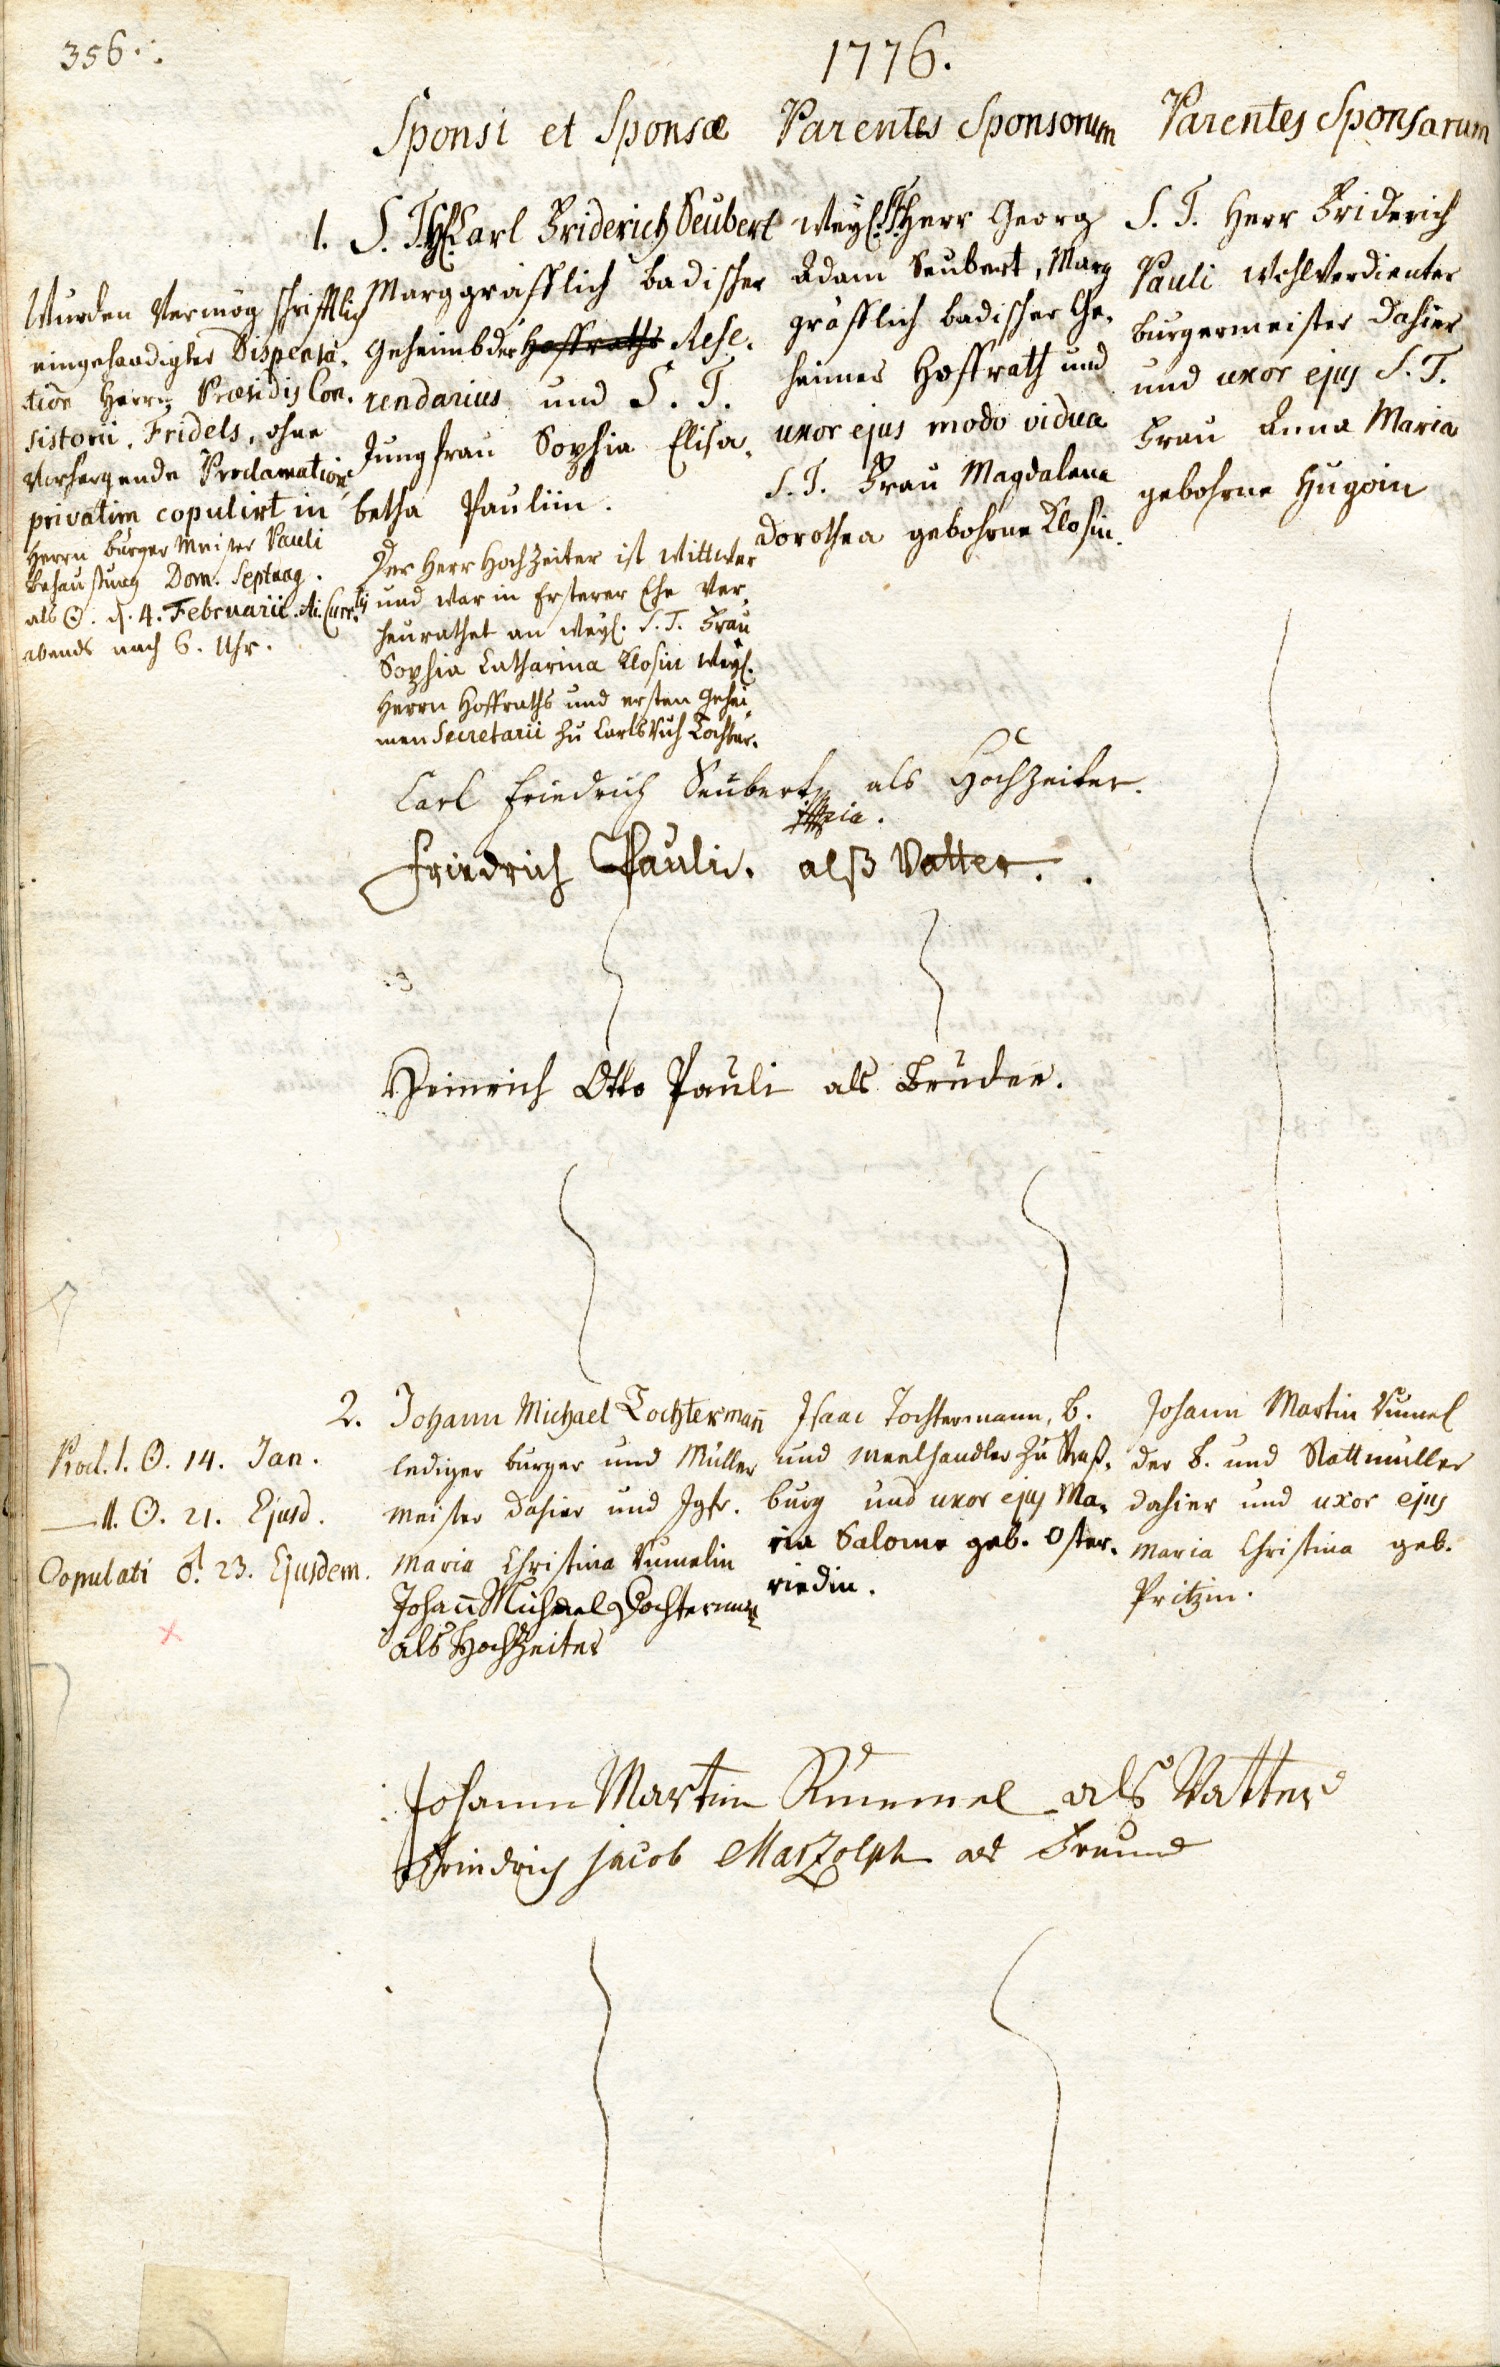 356.
1776.
Sponsi et Sponsæ
Parentes Sponsorum
Parentes Sponsarum
Wurden Vermög schrifftlich
eingehändigter Dispensa-
tion Herrn Præsidis Con-
sistorii, Fridels, ohne
Vorhergende Proclamation
privatim copulirt in
Herrn Burger Meister Pauli
Behaußung Dom. Septuag.
als ☉. d. 4. Februarii Ai. Curr.
abends nach 6. Uhr.
1. S. T. H. Carl Friderich Seubert
Marggräfflich Badischer
Geheimbder Hoffraths Refe-
rendarius und S. T.
Jungfrau Sophia Elisa-
betha Pauliin.
Der Herr Hochzeiter ist Wittwer
und war in Ersterer Ehe Ver-
heurathet an weyl. S. T. Frau
Sophia Catharina Klosin weyl.
Herrn Hoffraths und ersten Gehei-
men Secretarii zu Carlsruh Tochter.
weyl. S. T. Herr Georg
Adam Seubert, Marg
gräfflich Badischer Ge-
heimer Hoffrath und
uxor ejus modo vidua
S. T. Frau Magdalena
Dorothea gebohrne Klosin.
S. T. Herr Friderich
Pauli wohlverdienter
Burgermeister dahier
und uxor ejus S. T.
Frau Anna Maria
gebohrne Hugoin
Carl Friedrich Seubert als Hochzeiter.
Friedrich Pauli. alß Vatter.
Heinrich Otto Pauli als Bruder.
Procl. I. ☉. 14. Jan.
— II. ☉. 21. Ejusd.
Copulati ♂. 23. Ejusdem.
2. Johann Michael Tochtermañ
lediger Burger und Müller
Meister dahier und Jgfr.
Maria Christina Rumelin
Johañ Michael Dochterman
als Hochzeiter
Isaac Tochtermann, B.
und Meelhandler zu Straß-
burg und uxor ejus Ma-
ria Salome geb. Oster-
riedin.
Johann Martin Rumel
der B. und Stattmüller
dahier und uxor ejus
Maria Christina geb.
Pritzin.
Johann Martin Rummel als Vatter
Friedrich Jacob Marzolph als Freund